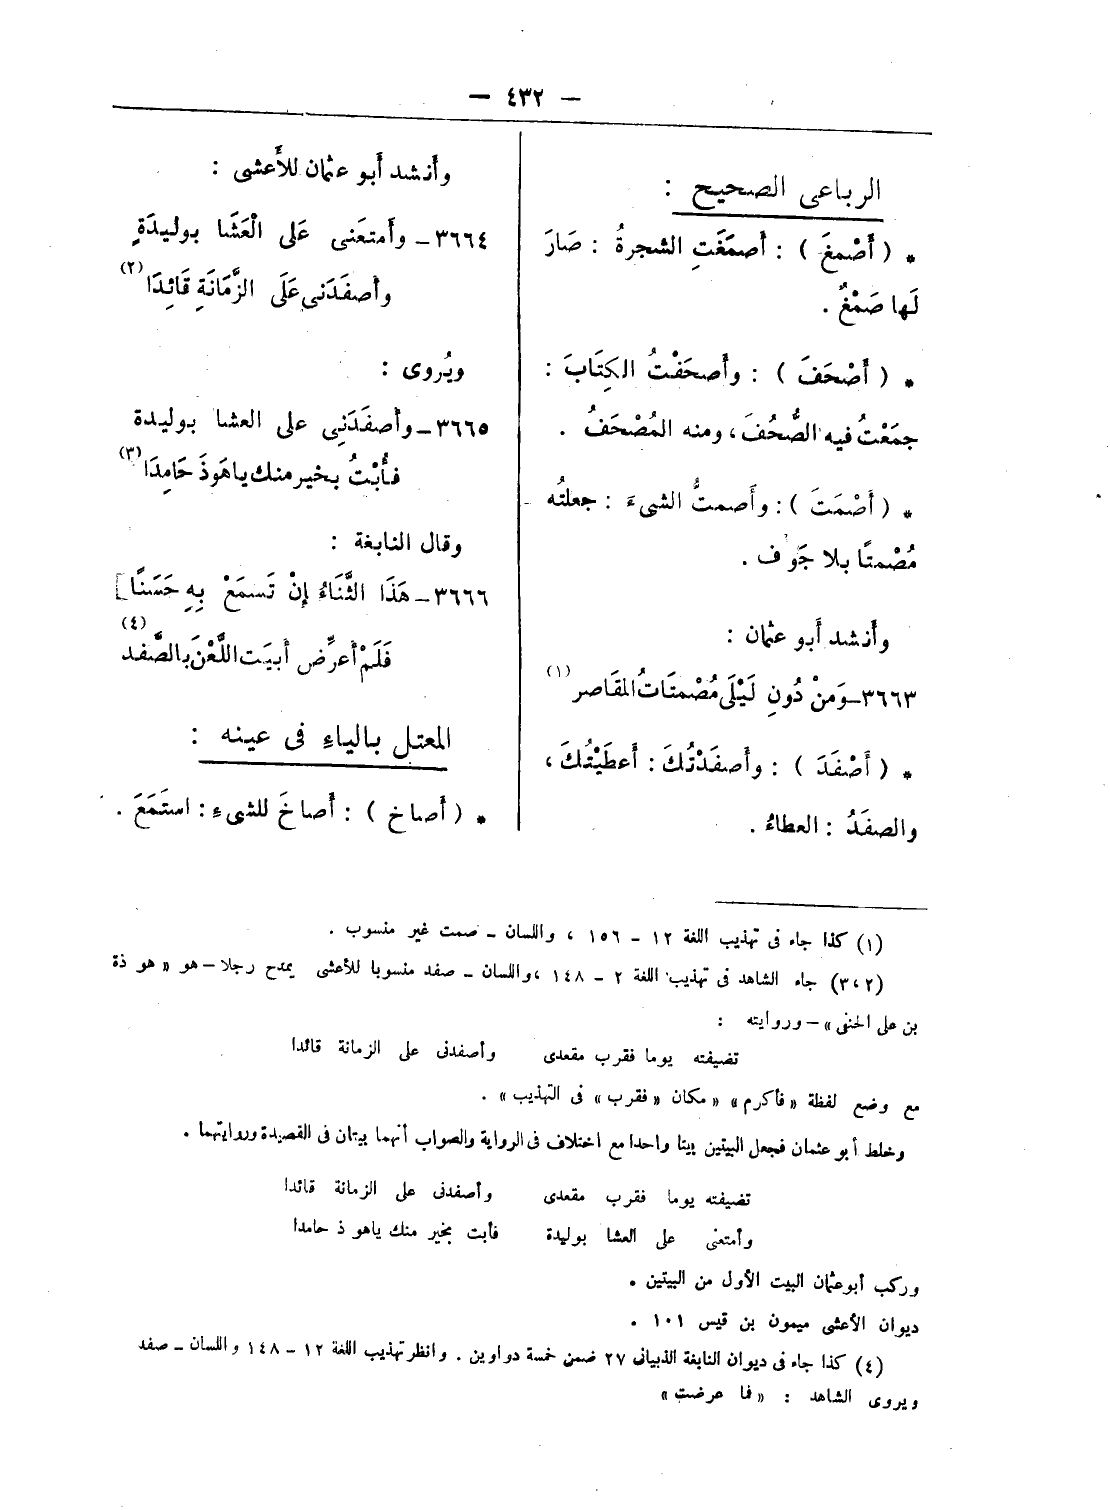 — ٤٣٢ —
الرباعى الصحيح :
* ( أَصْمغَ ) : أَصمَغَتِ الشجرةُ : صَارَ
لَها صَمْغٌ .
* ( أَصْحَفَ ) : وأَصحَفْتُ الكِتَابَ :
جمَعْتُ فيه الصُّحُفَ ، ومنه المُصْحَفُ .
* ( أَصْمَتَ ) : وأَصمتُّ الشىءَ : جعلتُه
مُصْمتًا بلا جَوف .
وأَنشد أَبو عثمان :
٣٦٦٣ــ وَمنْ دُونِ لَيْلَى مُصْمتَاتُ المقَاصر (١)
* ( أَصْفَدَ ) : وأَصفَدْتُكَ : أَعطَيْتُكَ ،
والصفَدُ : العطاءُ .
وأَنشد أَبو عثمان للأَعشى :
٣٦٦٤ــ وأَمتعَنى عَلى الْعَشَا بوليدَةٍ
وأصفَدَنى عَلَى الزَّمَانَةِ قَائِدَا (٢)
ويُروى :
٣٦٦٥ــ وأَصفَدَنِى على العشا بوليدة
فأُبْتُ بخير منك ياهَوذَ حَامِدَا (٣)
وقال النابغة :
٣٦٦٦ــ هَذَا الثَّنَاءُ إِنْ تَسمَعْ بِهِ حَسَنًا]
فَلَمْ أُعرِّض أَبيَت اللَّعْنَ بالصَّفد (٤)
المعتل بالياءِ فى عينه :
* ( أَصاخ ) : أَصاخَ للشىءِ : استَمَعَ .
(١) كذا جاء فى تهذيب اللغة ١٢ – ١٥٦ ، واللسان – صمت غير منسوب .
(٢ ، ٣) جاء الشاهد فى تهذيب اللغة ٢ – ١٤٨ ، واللسان – صفد منسوبا للأعشى يمدح رجلا – هو « هو ذة
بن على الحنفى » – وروايته :
تضيفته يوما فقرب مقعدى وأصفدنى على الزمانة قائدا
مع وضع لفظة « فأكرم » « مكان « فقرب » فى التهذيب » .
وخلط أبو عثمان فجعل البيتين بيتا واحدا مع اختلاف فى الرواية والصواب أنهما بيتان فى القصيدة وروايتهما .
تضيفته يوما فقرب مقعدى وأصفدنى على الزمانة قائدا
وأمتعنى على العشا بوليدة فأبت بخير منك ياهو ذ حامدا
وركب أبو عثمان البيت الأول من البيتين .
ديوان الأعشى ميمون بن قيس ١٠١ .
(٤) كذا جاء فى ديوان النابغة الذبيانى ٢٧ ضمن خمسة دواوين . وانظر تهذيب اللغة ١٢ – ١٤٨ واللسان – صفد
ويروى الشاهد : « فما عرضت »